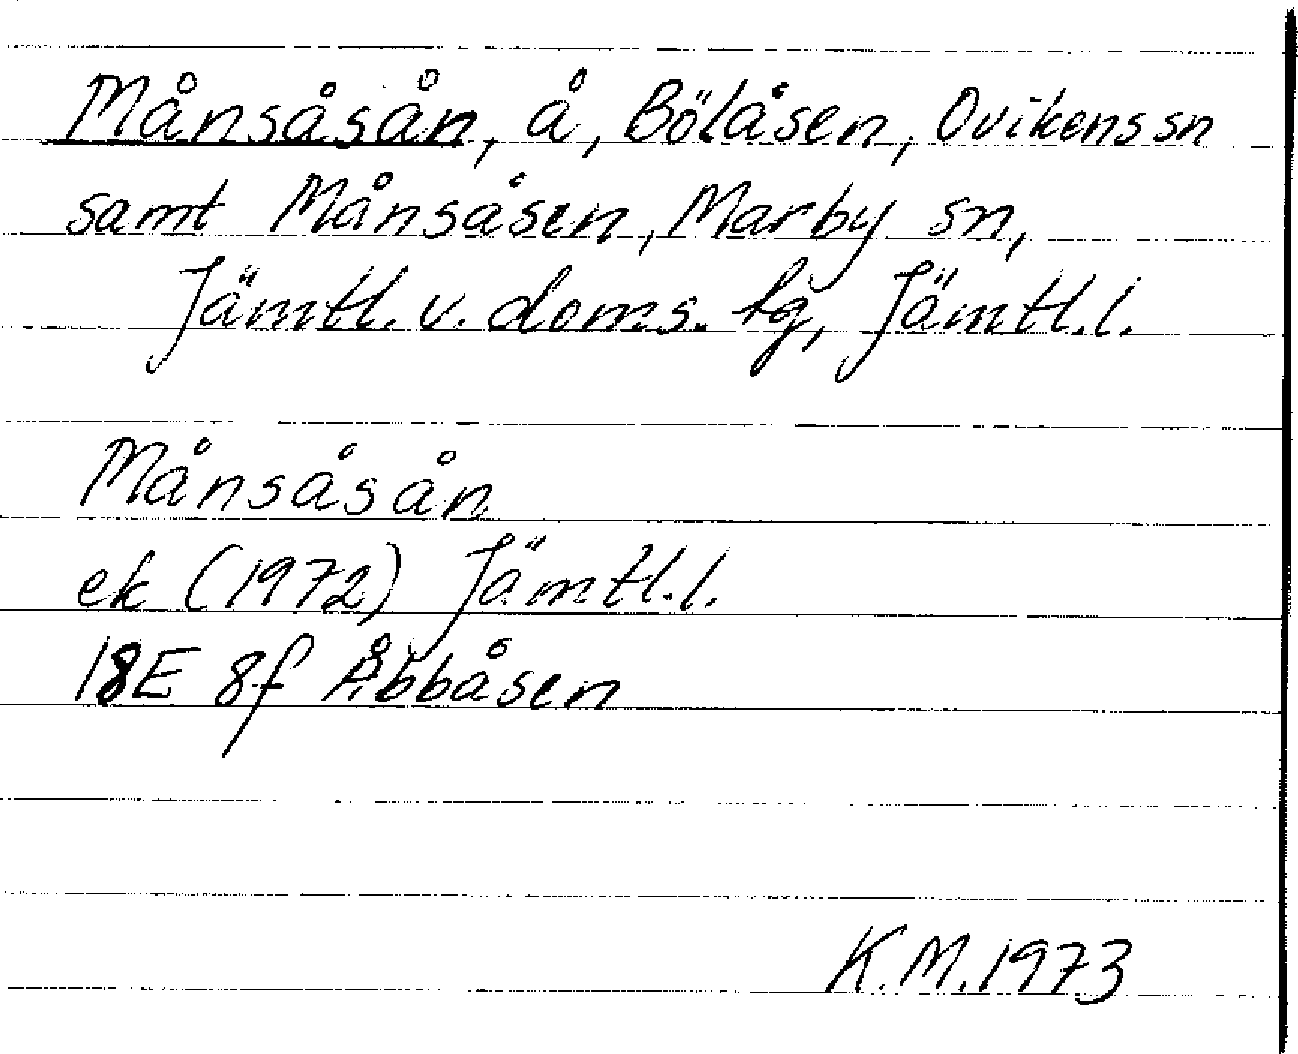 Månsåsån, å, Bölåsen, Ovikens sn
samt Månsåsen, Marby sn,
Jämtl. v. doms. tg, Jämtl.l.
Månsåsån
ek (1972) Jämtl.l.
18E 8f Åbbåsen
K.M.1973